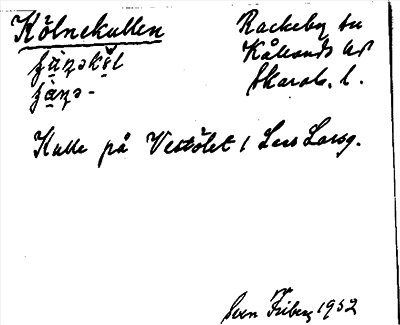 Kölnekullen
Rackeby sn
Kållands hd
Skarab. l.
Kulle på Vestölet / Lars Larsg.
Sven Friberg 1952